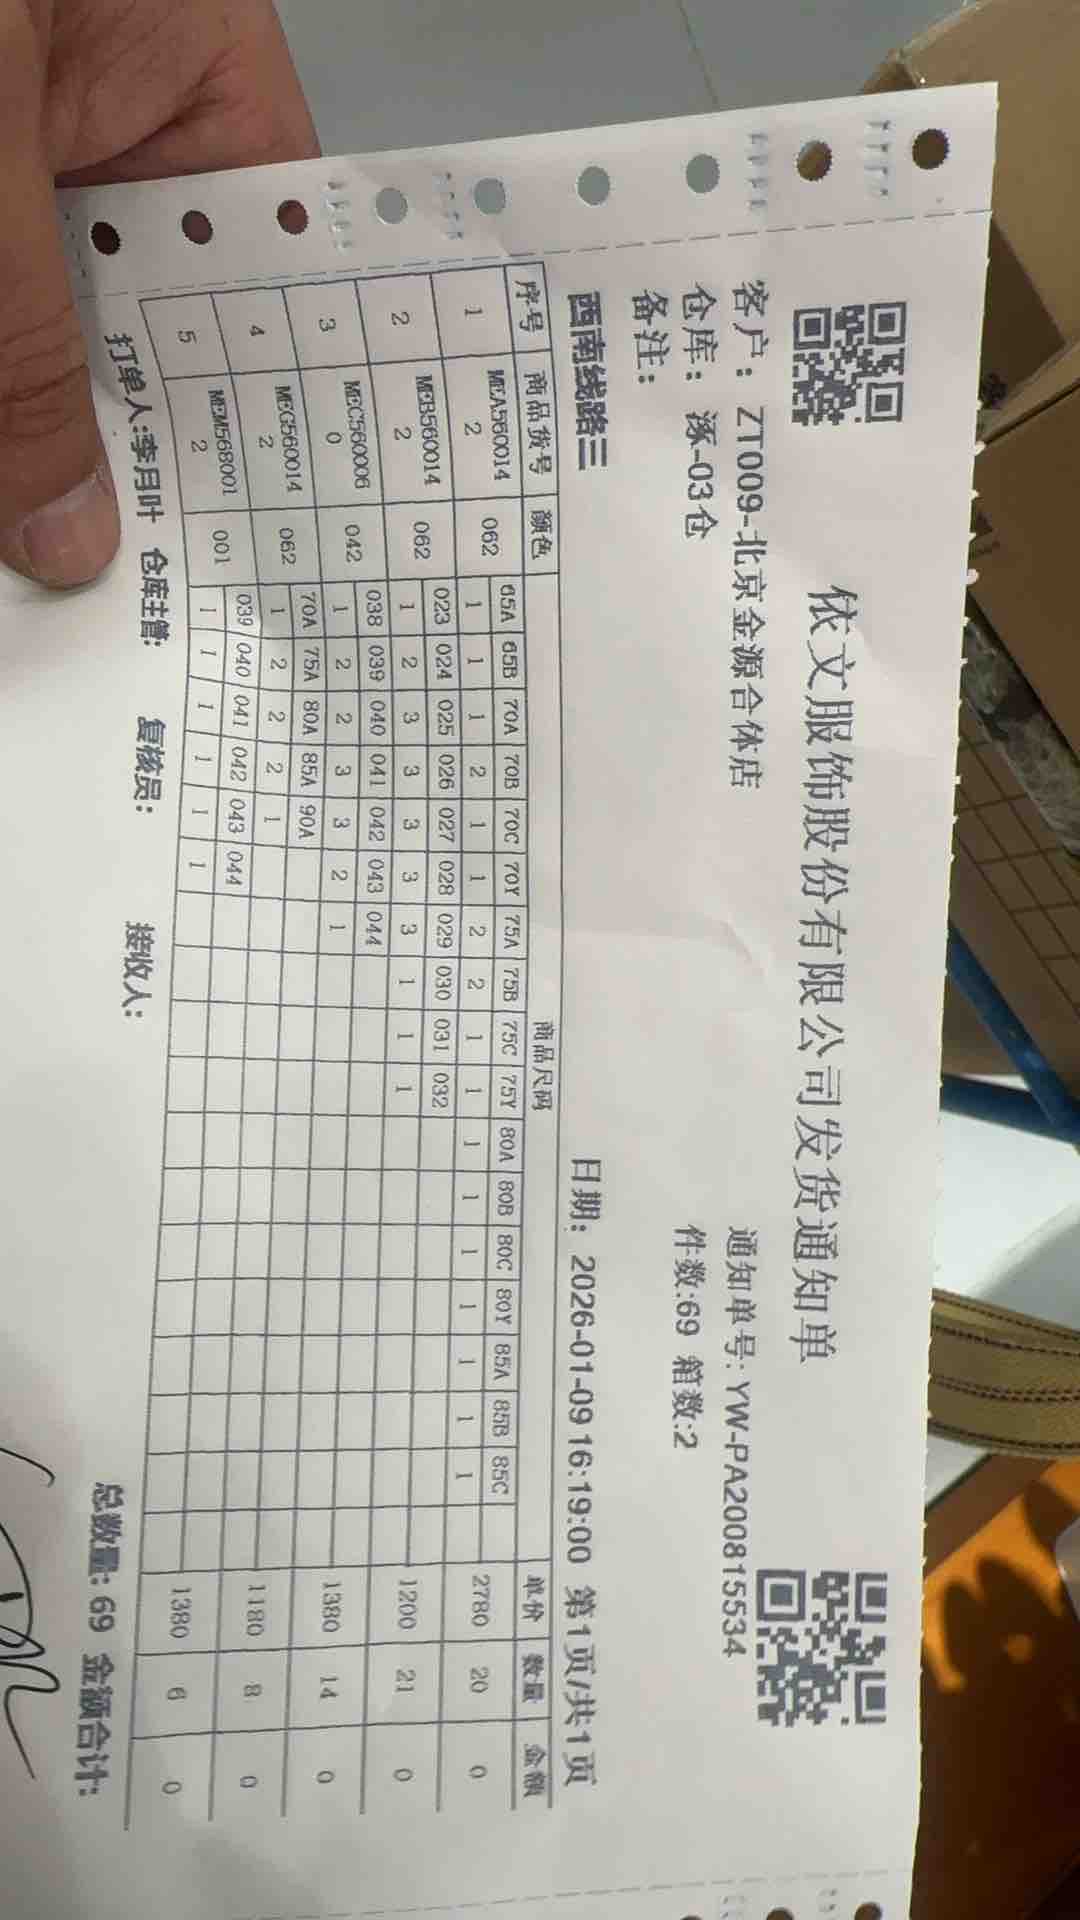 依文服饰股份有限公司发货通知单
客户: ZT009-北京金源合体店 通知单号: YW-PA200815534
仓库: 涿-03仓 件数:69 箱数:2
备注:
西南线路三 日期: 2026-01-09 16:19:00 第1页/共1页
序号 商品货号 颜色 商品尺码 单价 数量 金额
65A 65B 70A 70B 70C 70Y 75A 75B 75C 75Y 80A 80B 80C 80Y 85A 85B 85C
1 MEA5600142 062 1 1 1 2 1 1 2 2 1 1 1 1 1 1 1 1 1 2780 20 0
023 024 025 026 027 028 029 030 031 032
2 MEB5600142 062 1 2 3 3 3 3 3 1 1 1 1200 21 0
038 039 040 041 042 043 044
3 MEC5600060 042 1 2 2 3 3 2 1 1380 14 0
70A 75A 80A 85A 90A
4 MEG5600142 062 1 2 2 2 1 1180 8 0
039 040 041 042 043 044
5 MEM5680012 001 1 1 1 1 1 1 1380 6 0
打单人:李月叶 仓库主管: 复核员: 接收人: 总数量: 69 金额合计: